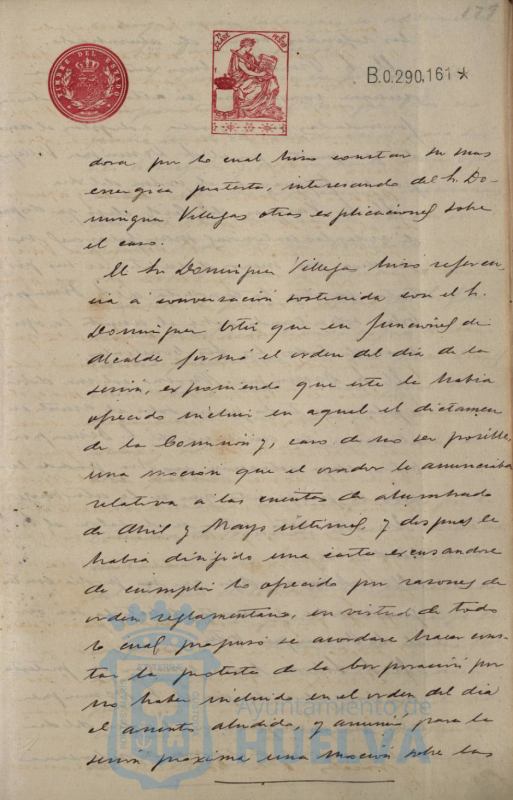 179
TIMBRE DEL ESTADO
B.0.290,161 *
dora por lo cual hizo constar su mas
energica protesta, interesando del Sr. Do-
minguez Villegas otras explicaciones sobre
el caso.
El Sr. Dominguez Villegas hizo referen-
cia a conversación sostenida con el Sr.
Dominguez Ortiz que en funciones de
Alcalde formó el orden del dia de la
sesión, exponiendo que este le habia
ofrecido incluir en aquel el dictamen
de la Comisión y, caso de no ser posible,
una moción que el orador le anunciaba
relativa a las cuentas de alumbrado
de Abril y Mayo ultimos, y despues le
habia dirigido una carta excusandose
de cumplir lo ofrecido por razones de
orden reglamentario, en virtud de todo
lo cual propuso se acordase hacer cons-
tar la protesta de la Corporación por
no haber incluido en el orden del dia
el asunto aludido, y anunció para la
sesión proxima una moción sobre las
Ayuntamiento de
HUELVA